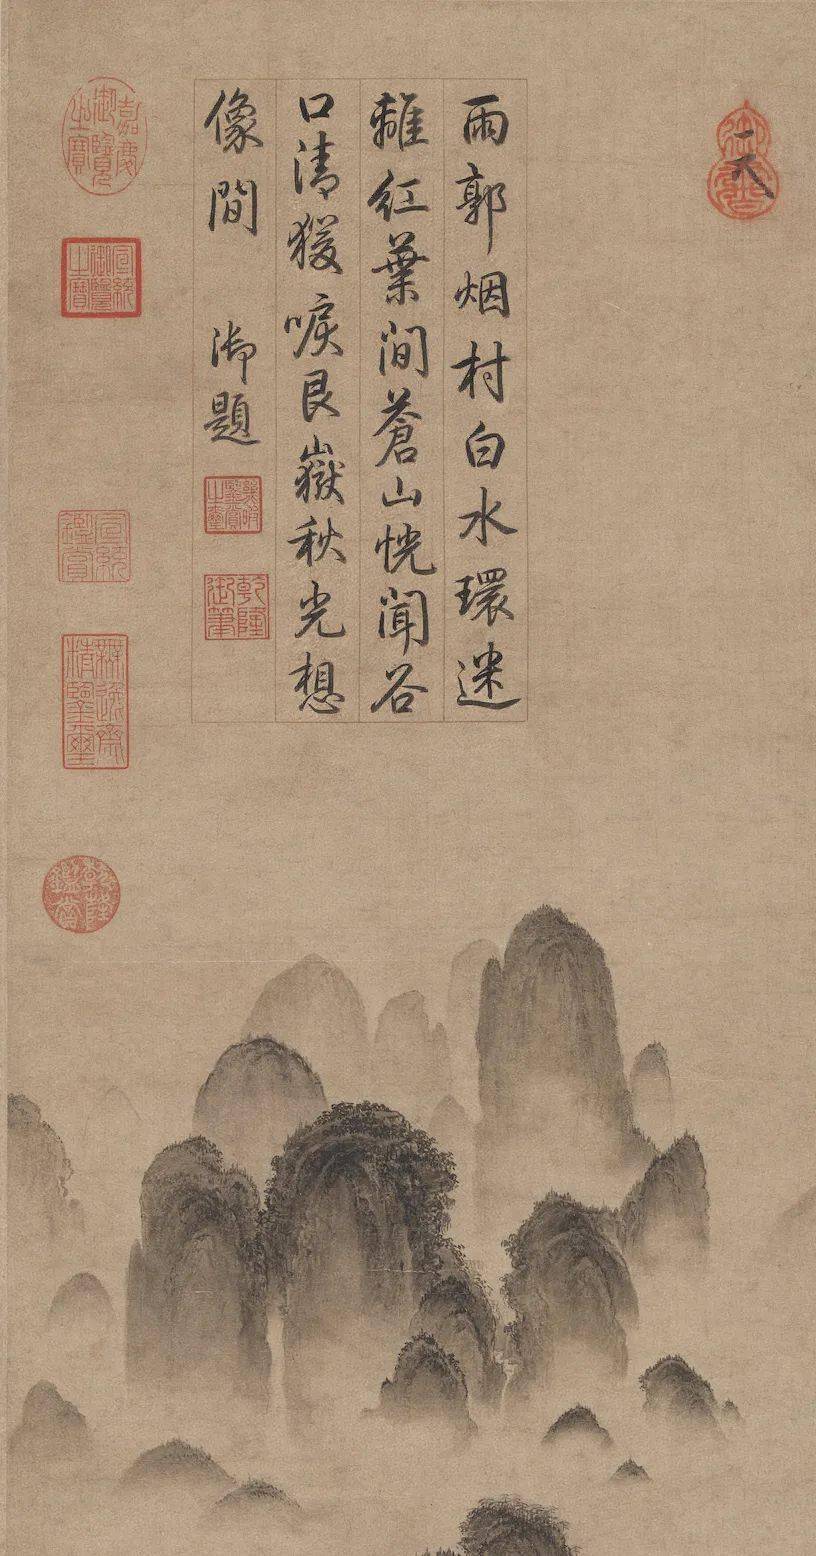 雨郭烟村白水環迷
離紅葉間蒼山恍聞谷
口清猨唳艮嶽秋光想
像間 御題
乾隆御筆
嘉慶御覽之寶
宣統御覽之寶
宣統鑑賞
無逸齋精鑒璽
乾隆鑑賞